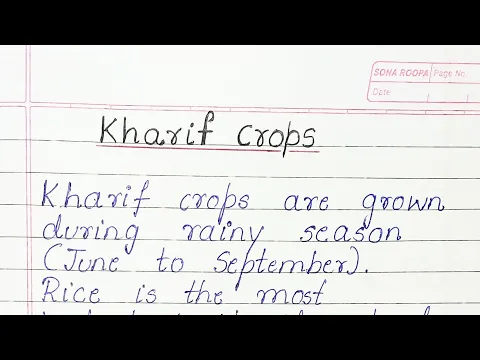 SONA ROOPA Page No.
Date
Kharif crops
Kharif crops are grown
during rainy season
(June to September).
Rice is the most